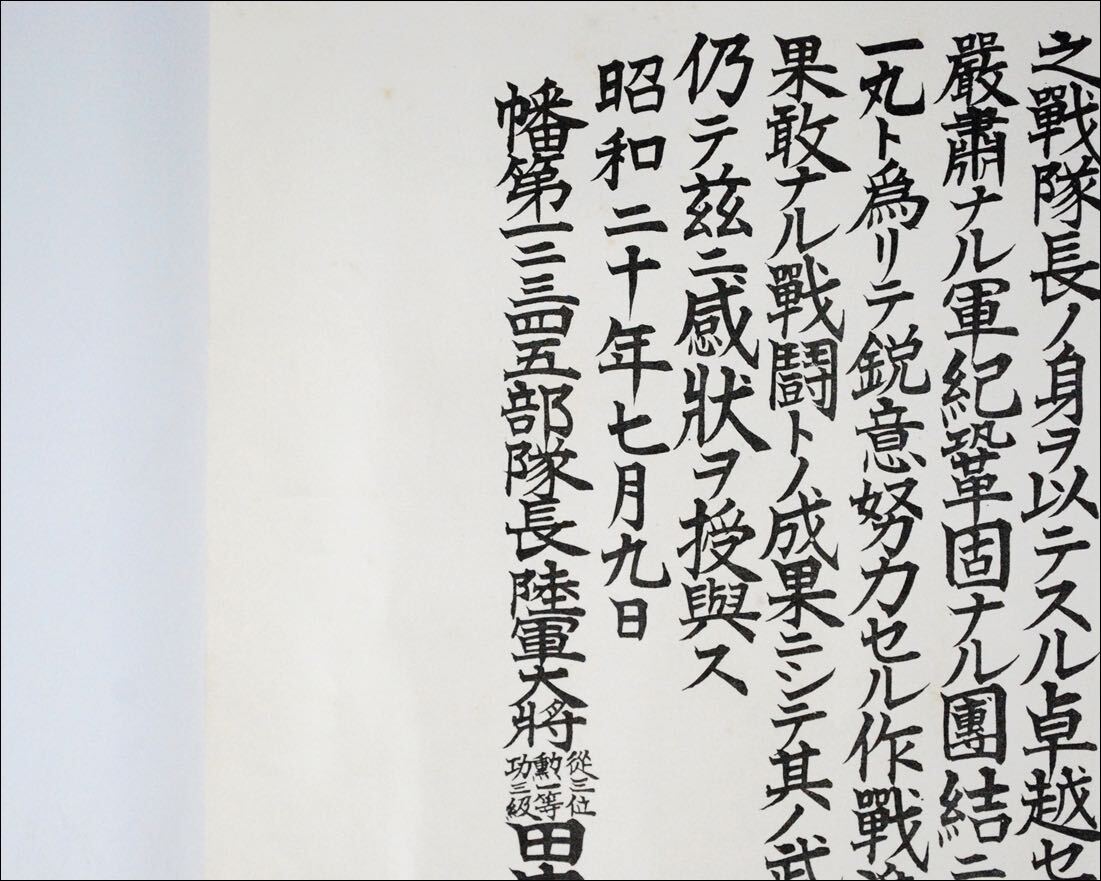 之戰隊長ノ身ヲ以テスル卓越セ
嚴肅ナル軍紀鞏固ナル團結ニ
一丸ト爲リテ鋭意努力セル作戰準
果敢ナル戰鬪トノ成果ニシテ其ノ武
仍テ茲ニ感狀ヲ授與ス
昭和二十年七月九日
幡第一二三四五部隊長陸軍大將
從三位
勳一等
功三級
田